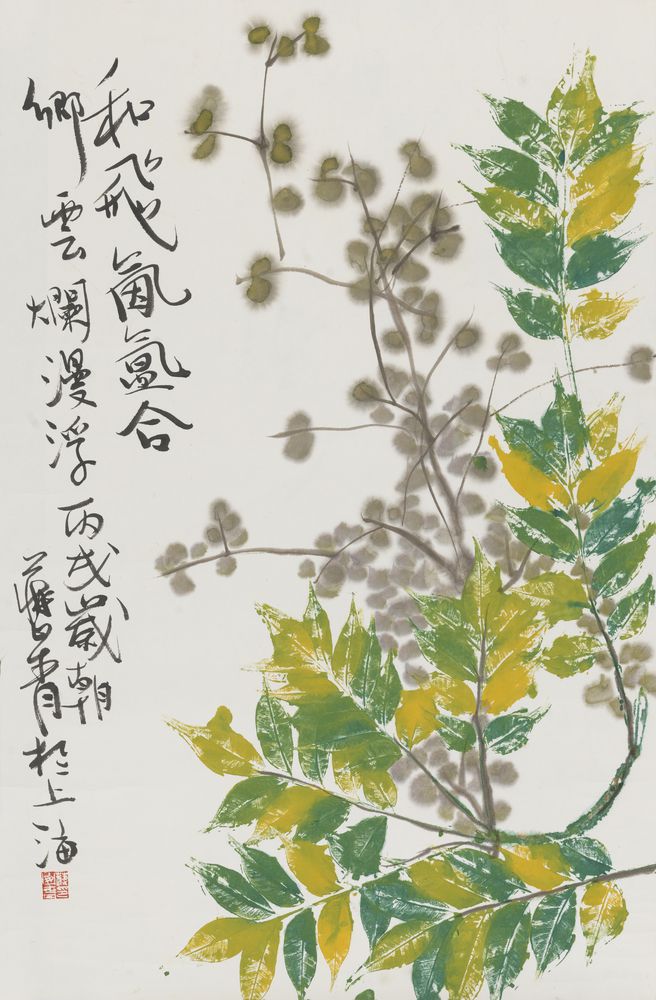 和飛氤氳合
卿雲爛漫浮丙戌歲朝
青於上海